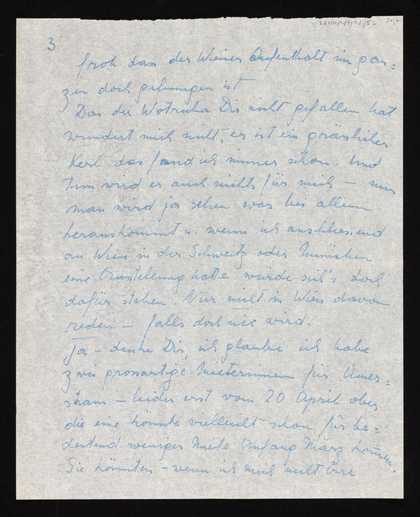 3
froh dass der Wiener Aufenthalt im gan=
zen doch gelungen ist
Dass der Wotruba Dir nicht gefallen hat
wundert mich nicht, er ist ein grässlicher
Kerl das fand ich immer schon. Und
tun wird er auch nichts für mich – nun
man wird ja sehen was bei allem
herauskommt u. wenn ich anschliessend
an Wien in der Schweiz oder München
eine Ausstellung hätte würde sich's doch
dafür stehen. Nur nicht in Wien davon
reden – falls doch nie wird.
Ja – denke Dir, ich glaube ich habe
zwei grossartige Mieterinnen für Amer=
sham – leider erst vom 20 April aber
die eine könnte vielleicht schon für be=
deutend weniger Miete Anfang März kommen.
Sie könnten – wenn ich mich nicht irre